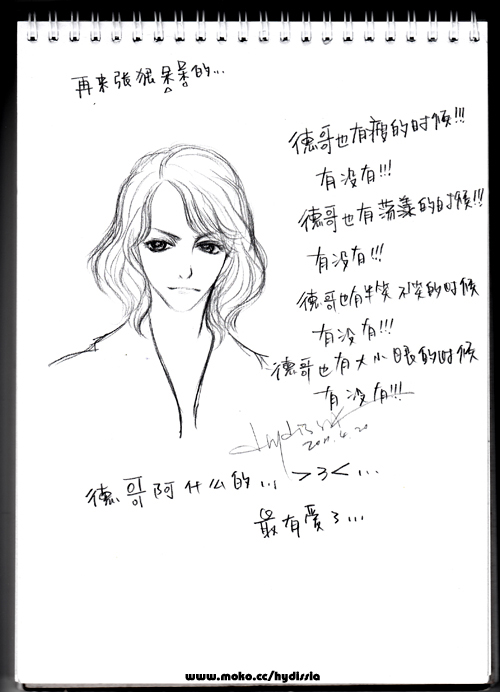 再来张狠呆呆的...
德哥也有瘦的时候!!!
有没有!!!
德哥也有荡漾的时候!!!
有没有!!!
德哥也有半笑不笑的时候
有没有!!!
德哥也有大小眼的时候
有没有!!!
hydissia
2011.4.20
德哥阿什么的... >3<...
最有爱了...
www.moko.cc/hydissia